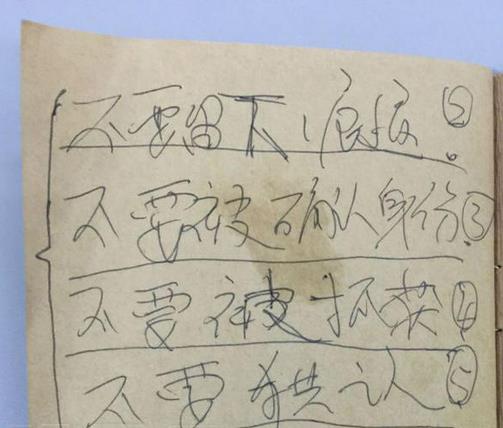 不要留下 ②
不要被确认身份③
不要被抓获④
不要供认⑤